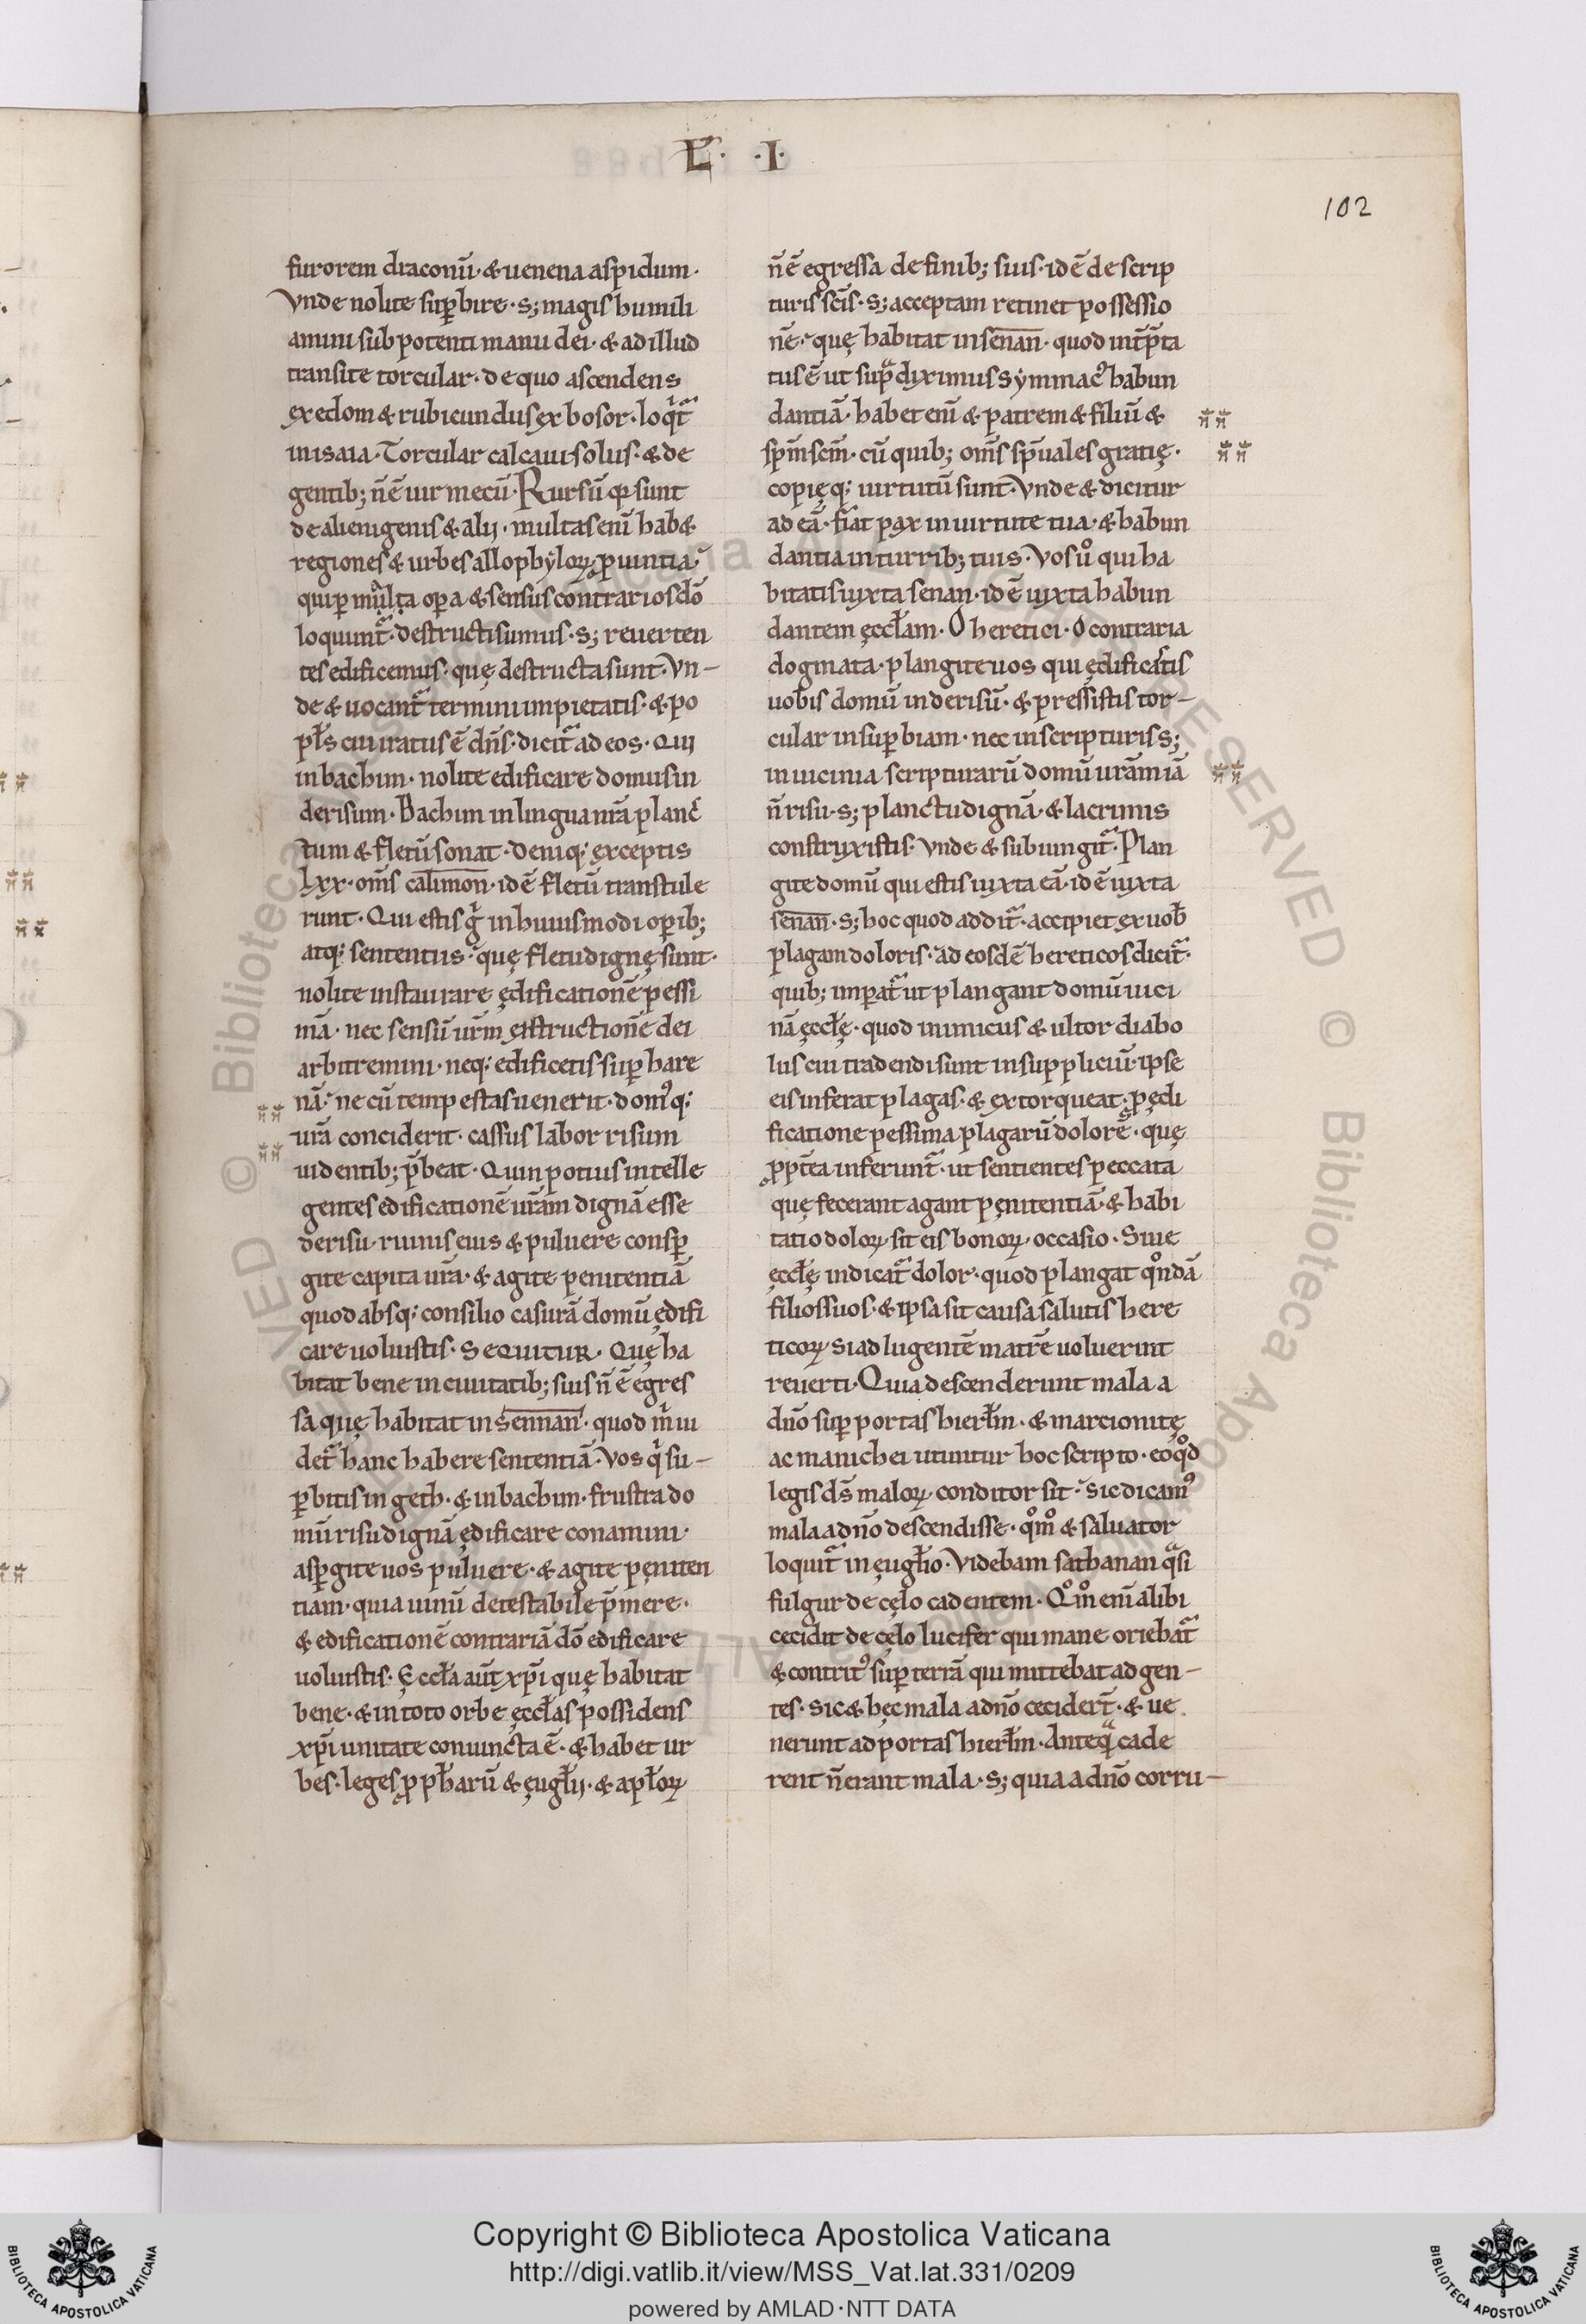 L̃· ·I·
102
furorem draconū· & uenena aspidum·
Vnde nolite suꝑbire· s; magis humili
amini sub potenti manu dei· & ad illud
transite torcular· de quo ascendens
ex edom & rubicundus ex bosor· loqͥt᷑
in isaia· Torcular calcaui solus· & de
gentib; ñ ē uir mecū· Rursū qꝛ sunt
de alienigenis & alij· multas enī hab&
regiones & urbes allophẏloꝝ ꝓuintia·
qui ꝑ multa opera & sensus contrarios dō
loquunt᷑· destructi sumus· s; reuerten
tes edificemus· quę destructa sunt· Vn-
de & uocant᷑ termini impietatis· & po
pl̃s cui iratus ē dñs· dicit᷑ ad eos· Qui
in bachim· nolite edificare domus in
derisum· Bachim in lingua nr̃a planc
tum & fletū sonat· deniq; exceptis
lxx· om̃s calimon· id ē fletū transtule
runt· Qui estis gͥ in huiusmodi oꝑib;
atq; sententiis· quę fletu dignę sunt·
nolite instaurare ędificationē pessi
mā· nec sensū ur̃m exstructionē dei
arbitremini· neq; edificetis super hare
nā· ne cū tempestas uenerit· domꝰq;
ur̃a conciderit· cassus labor risum
uidentib; p̄beat· Quin potius intelle
gentes edificationē ur̃am dignā esse
derisu· ruinis eius & puluere consꝑ
gite capita ur̃a· & agite penitentiā
quod absq; consilio casurā domū ędifi
care uoluistis· SEQUITUR· Quę ha
bitat bene in ciuitatib; suis ñ ē egres
sa quę habitat in sennan· quod m̃ ui
det᷑ hanc habere sententiā· Vos qͥ su-
ꝑbitis in geth· & in bachim· frustra do
mū risu dignā ędificare conamini·
asꝑgite uos puluere· & agite pęniten
tiam· quia uinū detestabile p̄mere·
& edificationē contrariā dō edificare
uoluistis· Ęccl̃a aut̃ xp̃i quę habitat
bene· & in toto orbe ęccl̃as possidens
xp̃i unitate coniuncta ē· & habet ur
bes· leges ꝓph̃arū & ęugl̃ij· & apl̃oꝝ
ñ ē egressa de finib; suis· id ē de scrip
turis sc̃is· s; acceptam retinet possessio
nē· quę habitat in senan· quod int̃p̃ta
tus ē ut sup̃ diximus sẏmmacꝰ habun
dantiā· habet enī & patrem & filiū &
sp̃m sc̃m· cū quib; om̃s sp̃uales gratię·
copięq; uirtutū sunt· Vnde & dicitur
ad eā· fiat pax in uirtute tua· & habun
dantia in turrib; tuis· Vos ů qui ha
bitatis iuxta senan· id ē iuxta habun
dantem ęccl̃am· O heretici· O contraria
dogmata· plangite uos qui ędificatis
uobis domū in derisū· & pressistis tor-
cular in suꝑbiam· nec in scripturis s;
in uicinia scripturarū domū ur̃am iā
ñ risu· s; planctu dignā· & lacrimis
construxistis· Vnde & subiungit᷑· Plan
gite domū qui estis iuxta eā· id ē iuxta
senan· s; hoc quod addit᷑· accipiet ex uob̃
plagam doloris· ad eosdē hereticos dicit᷑·
quib; imperat᷑ ut plangant domū uici
nā ęccl̃ę· quod inimicus & ultor diabo
lus cui tradendi sunt in suppliciū· ipse
eis inferat plagas· & extorqueat· ꝑ ędi
ficatione pessima plagarū dolorē· quę
ꝓpt̃ea inferunt᷑· ut sentientes peccata
quę fecerant agant pęnitentiā· & habi
tatio doloꝝ· sit eis bonoꝝ· occasio· Siue
ęccl̃ę indicat᷑ dolor· quod plangat qͦndā
filios suos· & ipsa sit causa salutis here
ticoꝝ si ad lugentē matrē uoluerint
reuerti· Quia descenderunt mala a
dño super portas hierl̃m· & marcionitę
ac manichei utuntur hoc scripto· eo qͦd
legis d̃s maloꝝ conditor sit· Sic dicamꝰ
mala a dño descendisse· qͦmͦ & saluator
loquit᷑ in ęugl̃io· Videbam sathanan qͣsi
fulgur de cęlo cadentem· Qͦmͦ enī alibi
cecidit de cęlo lucifer qui mane oriebat᷑
& contritꝰ super terrā qui mittebat ad gen-
tes· sic & hęc mala a dño cecider̃t· & ue
nerunt ad portas hierl̃m· Anteqͣ cade
rent ñ erant mala· s; quia a dño corru-
Copyright © Biblioteca Apostolica Vaticana
http://digi.vatlib.it/view/MSS_Vat.lat.331/0209
powered by AMLAD·NTT DATA
BIBLIOTECA APOSTOLICA VATICANA
BIBLIOTECA APOSTOLICA VATICANA